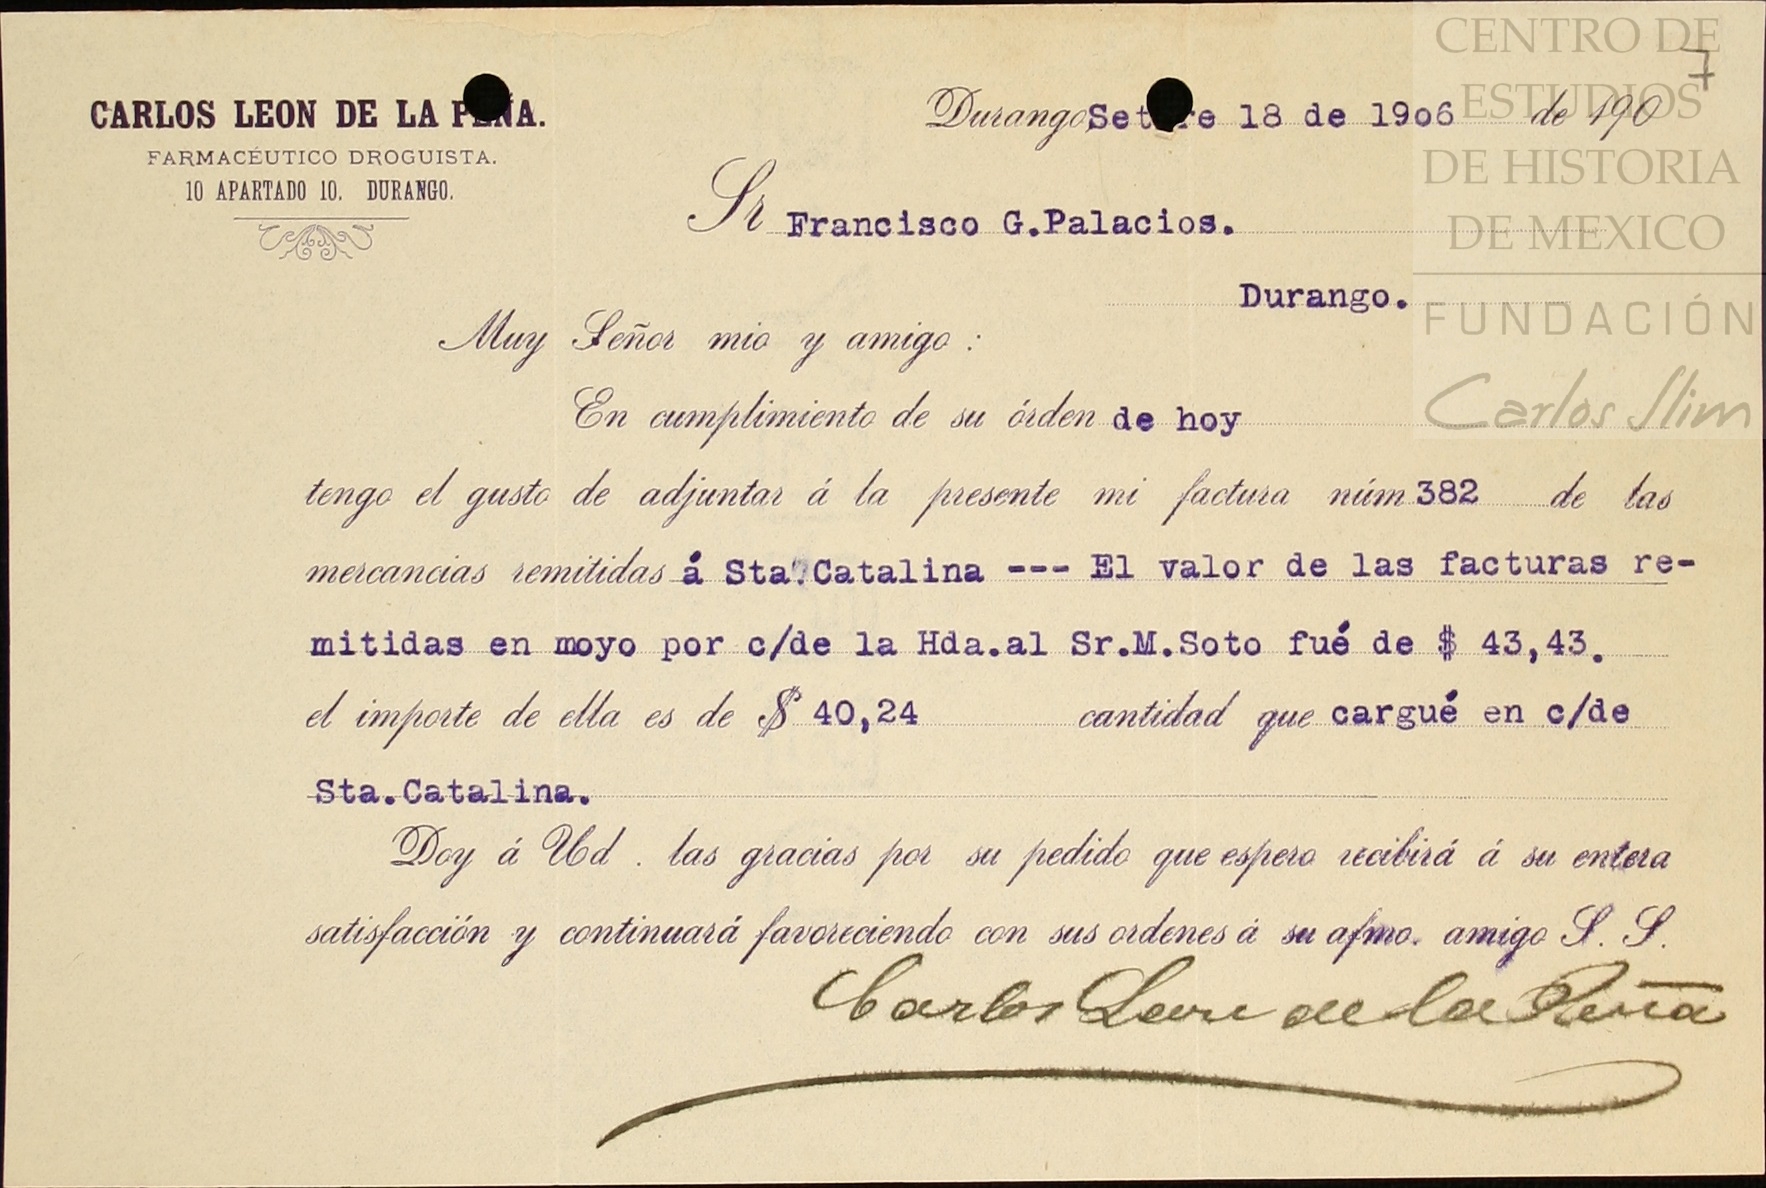 CARLOS LEON DE LA PEÑA.
FARMACÉUTICO DROGUISTA.
10 APARTADO 10. DURANGO.
Durango, Setbre 18 de 1906 de 190
7
Sr Francisco G.Palacios.
Durango.
Muy Señor mio y amigo:
En cumplimiento de su órden de hoy
tengo el gusto de adjuntar á la presente mi factura núm 382 de las
mercancias remitidas á Sta.Catalina --- El valor de las facturas re-
mitidas en moyo por c/de la Hda.al Sr.M.Soto fué de $ 43,43.
el importe de ella es de $ 40,24 cantidad que cargué en c/de
Sta.Catalina.
Doy á Ud. las gracias por su pedido que espero recibirá á su entera
satisfacción y continuará favoreciendo con sus ordenes á su afmo. amigo S. S.
Carlos Leon de la Peña
CENTRO DE
ESTUDIOS
DE HISTORIA
DE MEXICO
FUNDACIÓN
Carlos Slim